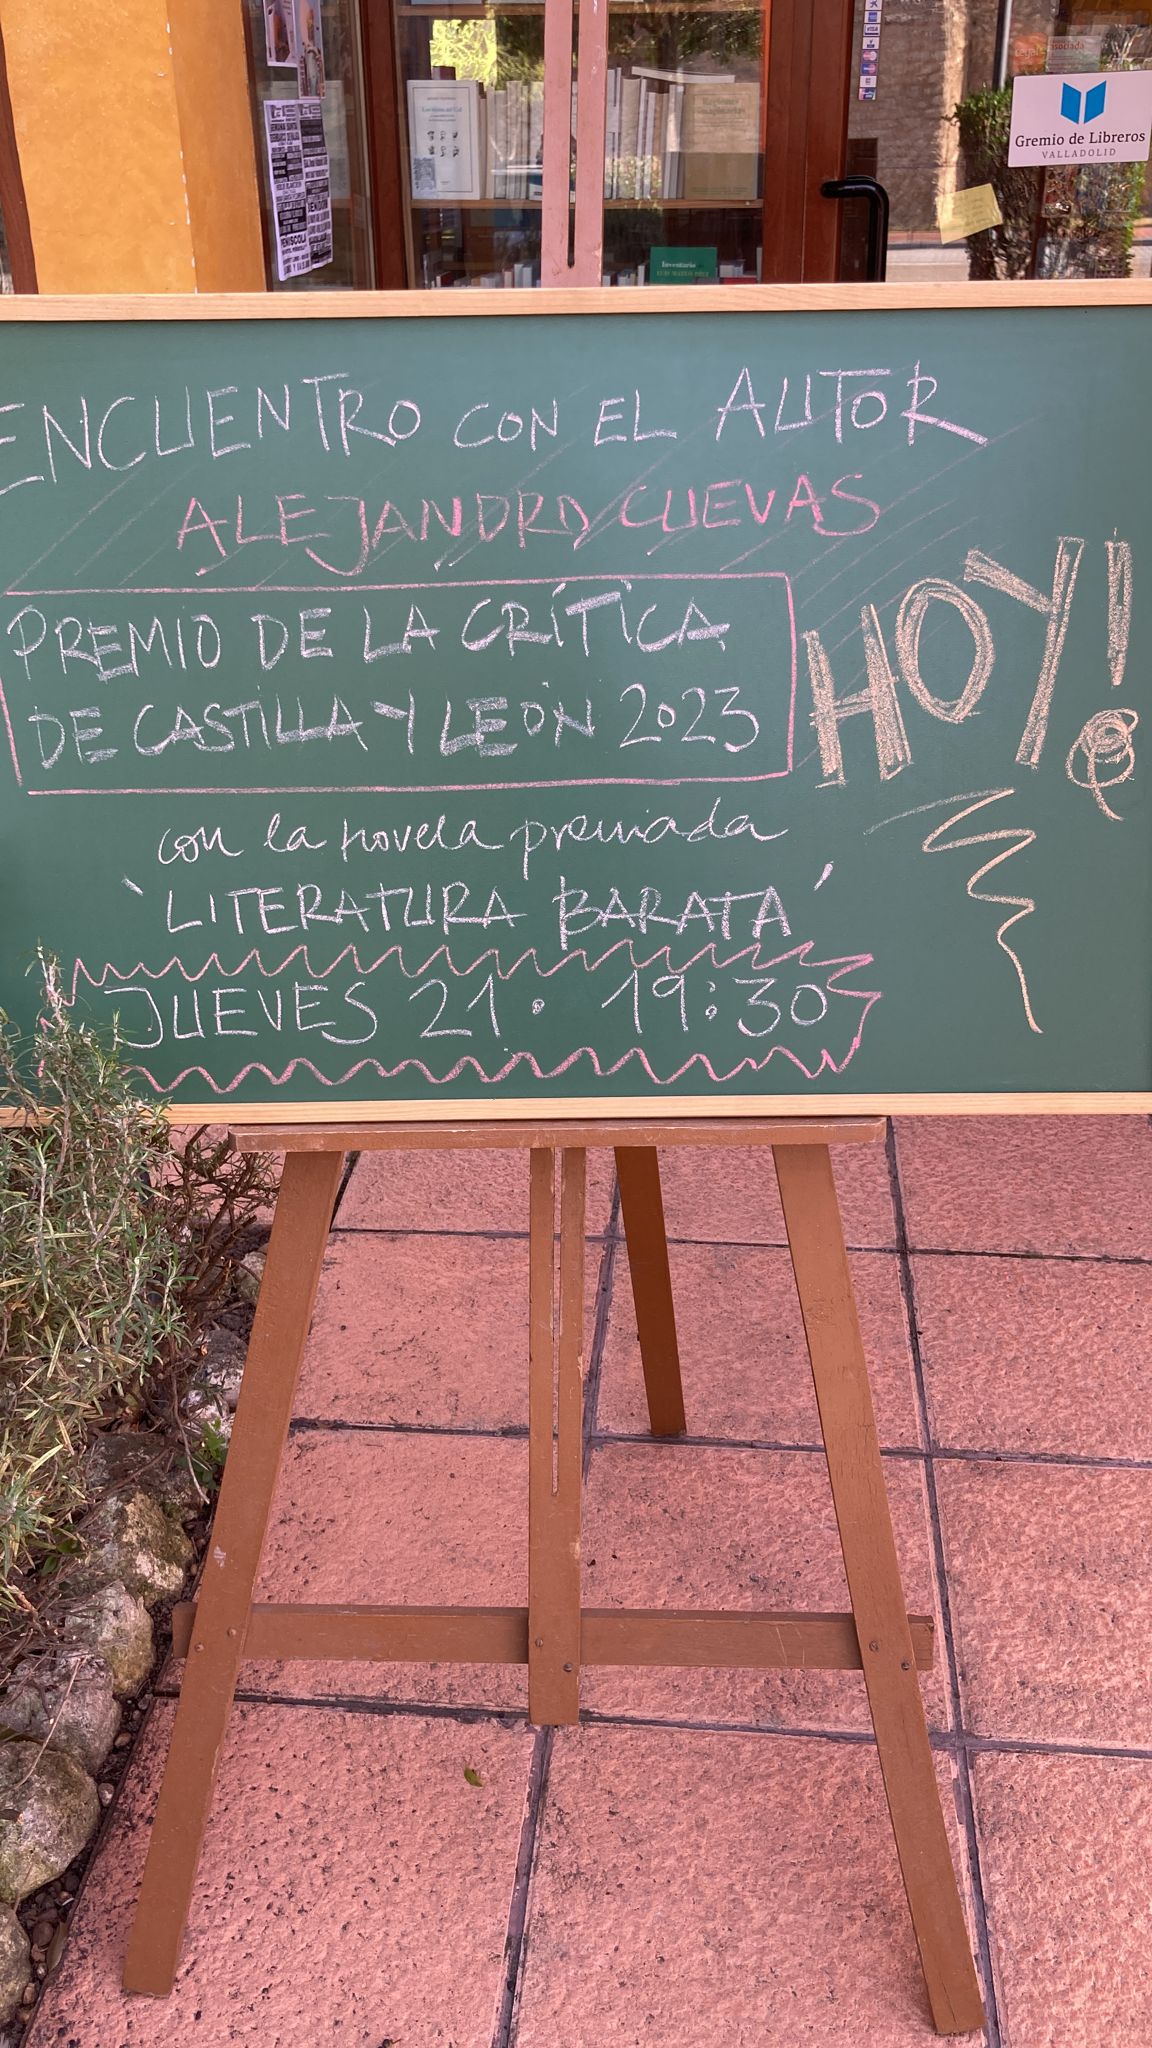 Gremio de Libreros
VALLADOLID
Inventario
PEÑISCOLA
ENCUENTRO CON EL AUTOR
ALEJANDRO CUEVAS
PREMIO DE LA CRÍTICA
DE CASTILLA Y LEÓN 2023
HOY!
con la novela premiada
'LITERATURA BARATA'
JUEVES 21 · 19:30